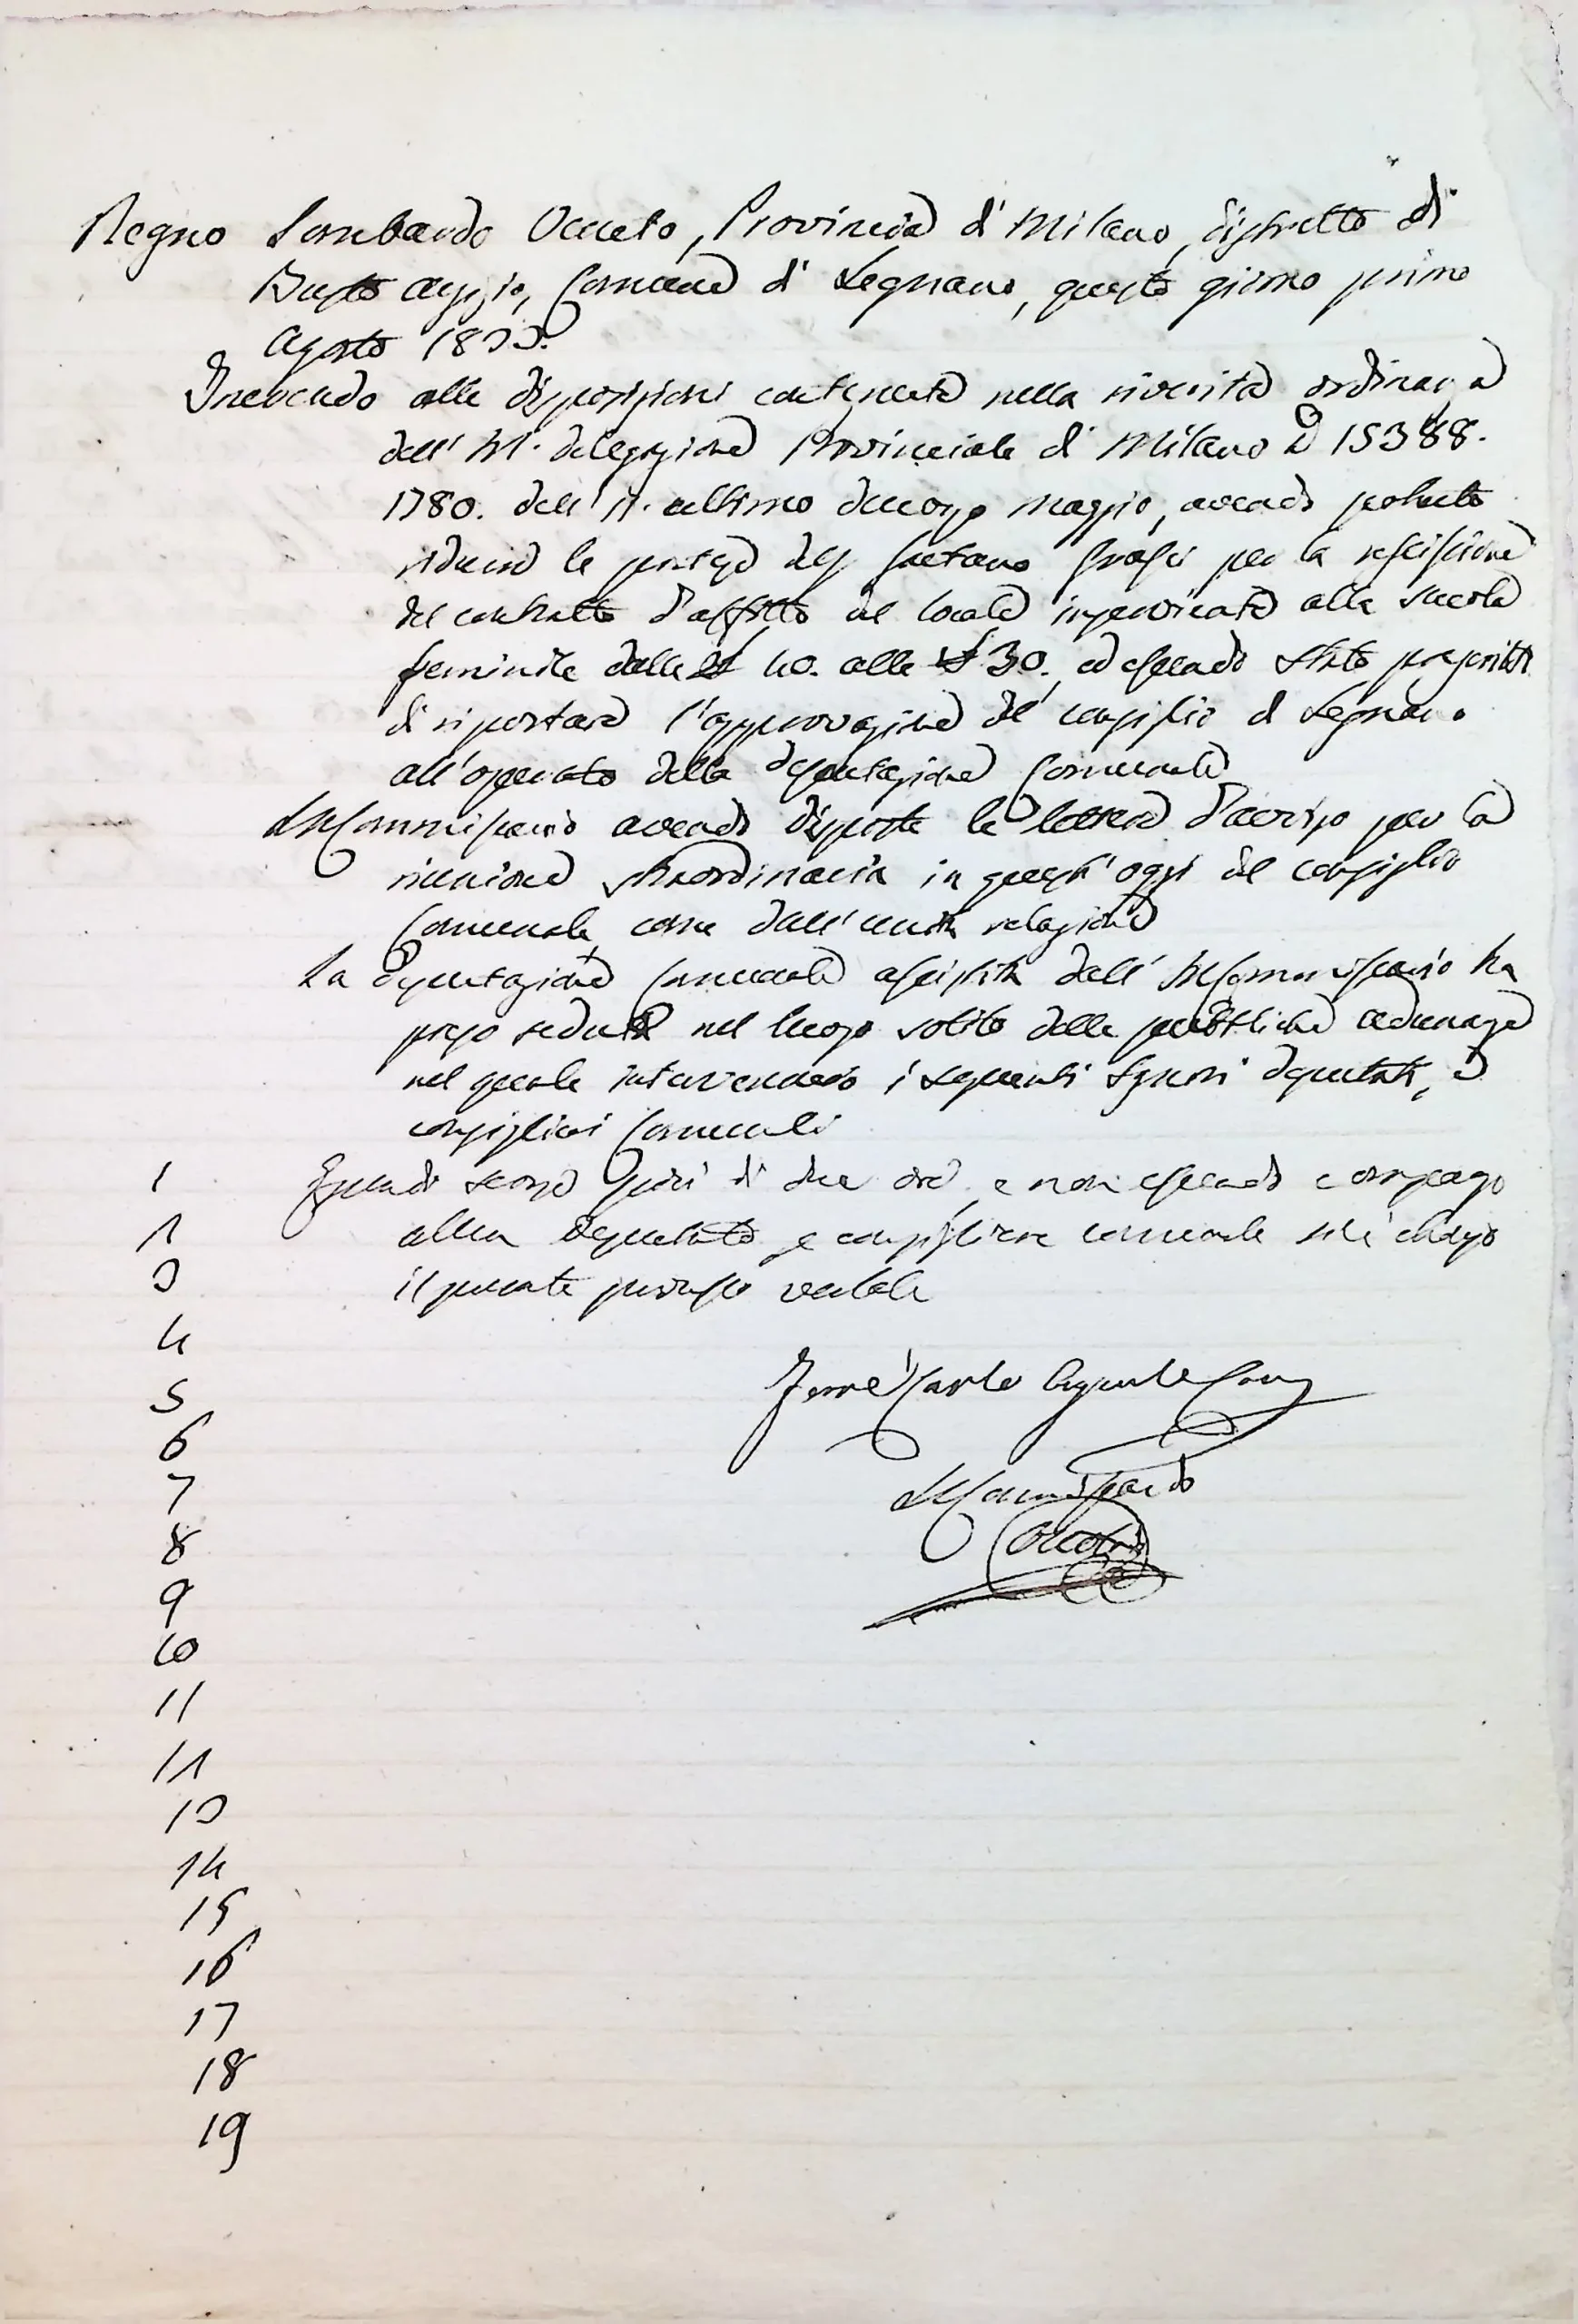 Regno Lombardo Veneto, Provincia di Milano, distretto di
Busto Arsizio, Comune di Legnano, questo giorno primo
Agosto 1833.
Inerendo alle disposizioni contenute nella riverita ordinanza
dell' I.R. delegazione Provinciale di Milano 15388.
1780. dell' ultimo decorso Maggio, avendo potuto
ridurre le pretese del Gaetano per la rescissione
del contratto d'affitto del locale inservibile alla scuola
feminile dalle 40. alle 30. ed essendo stato prescritto
di riportare l'approvazione del consiglio di Legnano
all'operato della deputazione Comunale
L'I.R. Commissario avendo disposte le lettere d'avviso per la
riunione straordinaria in quest'oggi del consiglio
Comunale come dall'unita relazione
La deputazione Comunale assistita dall' I.R. Commissario ha
preso seduta nel luogo solito delle pubbliche adunanze
nel quale intervennero i seguenti Signori deputati, e
consiglieri Comunali
1 Essendi scorse più di due ore, e non essendo comparso
2 alcun deputato e consigliere comunale si è chiuso
3 il presente processo verbale
4
5 Carlo Agente Com
6
7 L'I.R. Commissario
8
9
10
11
12
13
14
15
16
17
18
19